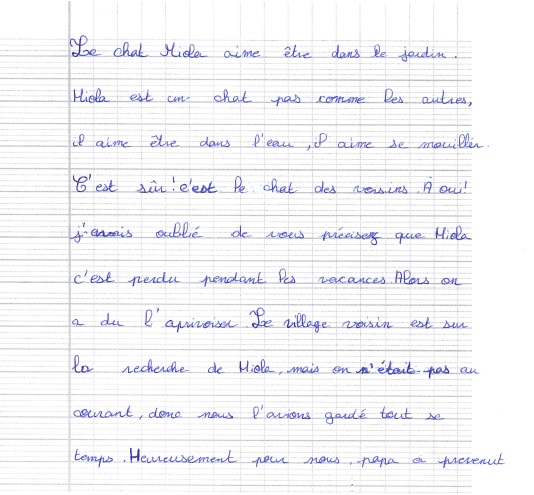 Le chat Miola aime être dans le jardin.
Miola est un chat pas comme les autres,
il aime être dans l'eau, il aime se mouiller.
C'est sûr! c'est le chat des voisins. A oui!
j'avais oublié de vous préciser que Miola
c'est perdu pendant les vacances. Alors on
a du l'aprivoiser. Le village voisin est sur
la recherche de Miola, mais on n'était pas au
courant, donc nous l'avions gardé tout se
temps. Heureusement pour nous, papa a prevenut